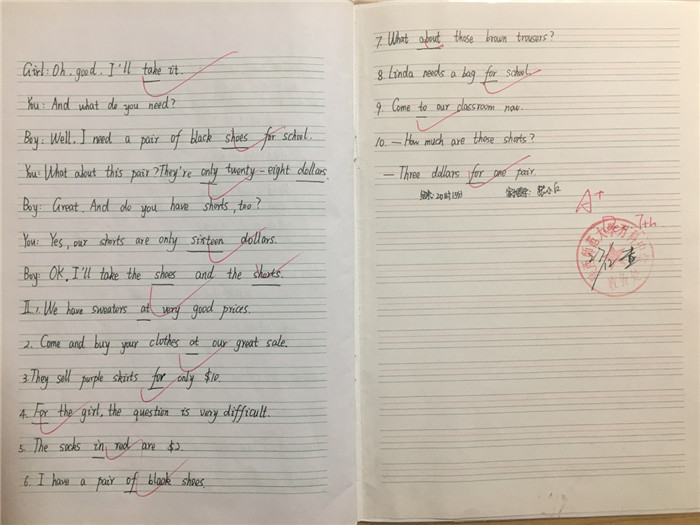 Girl: Oh, good. I'll take it.
You: And what do you need?
Boy: Well, I need a pair of black shoes for school.
You: What about this pair? They're only twenty-eight dollars.
Boy: Great. And do you have shorts, too?
You: Yes, our shorts are only sixteen dollars.
Boy: OK, I'll take the shoes and the shorts.
II. 1. We have sweaters at very good prices.
2. Come and buy your clothes at our great sale.
3. They sell purple skirts for only $10.
4. For the girl, the question is very difficult.
5. The socks in red are $2.
6. I have a pair of black shoes.
7. What about those brown trousers?
8. Linda needs a bag for school.
9. Come to our classroom now.
10. — How much are those shorts?
— Three dollars for one pair.
A+
Dec. 7th